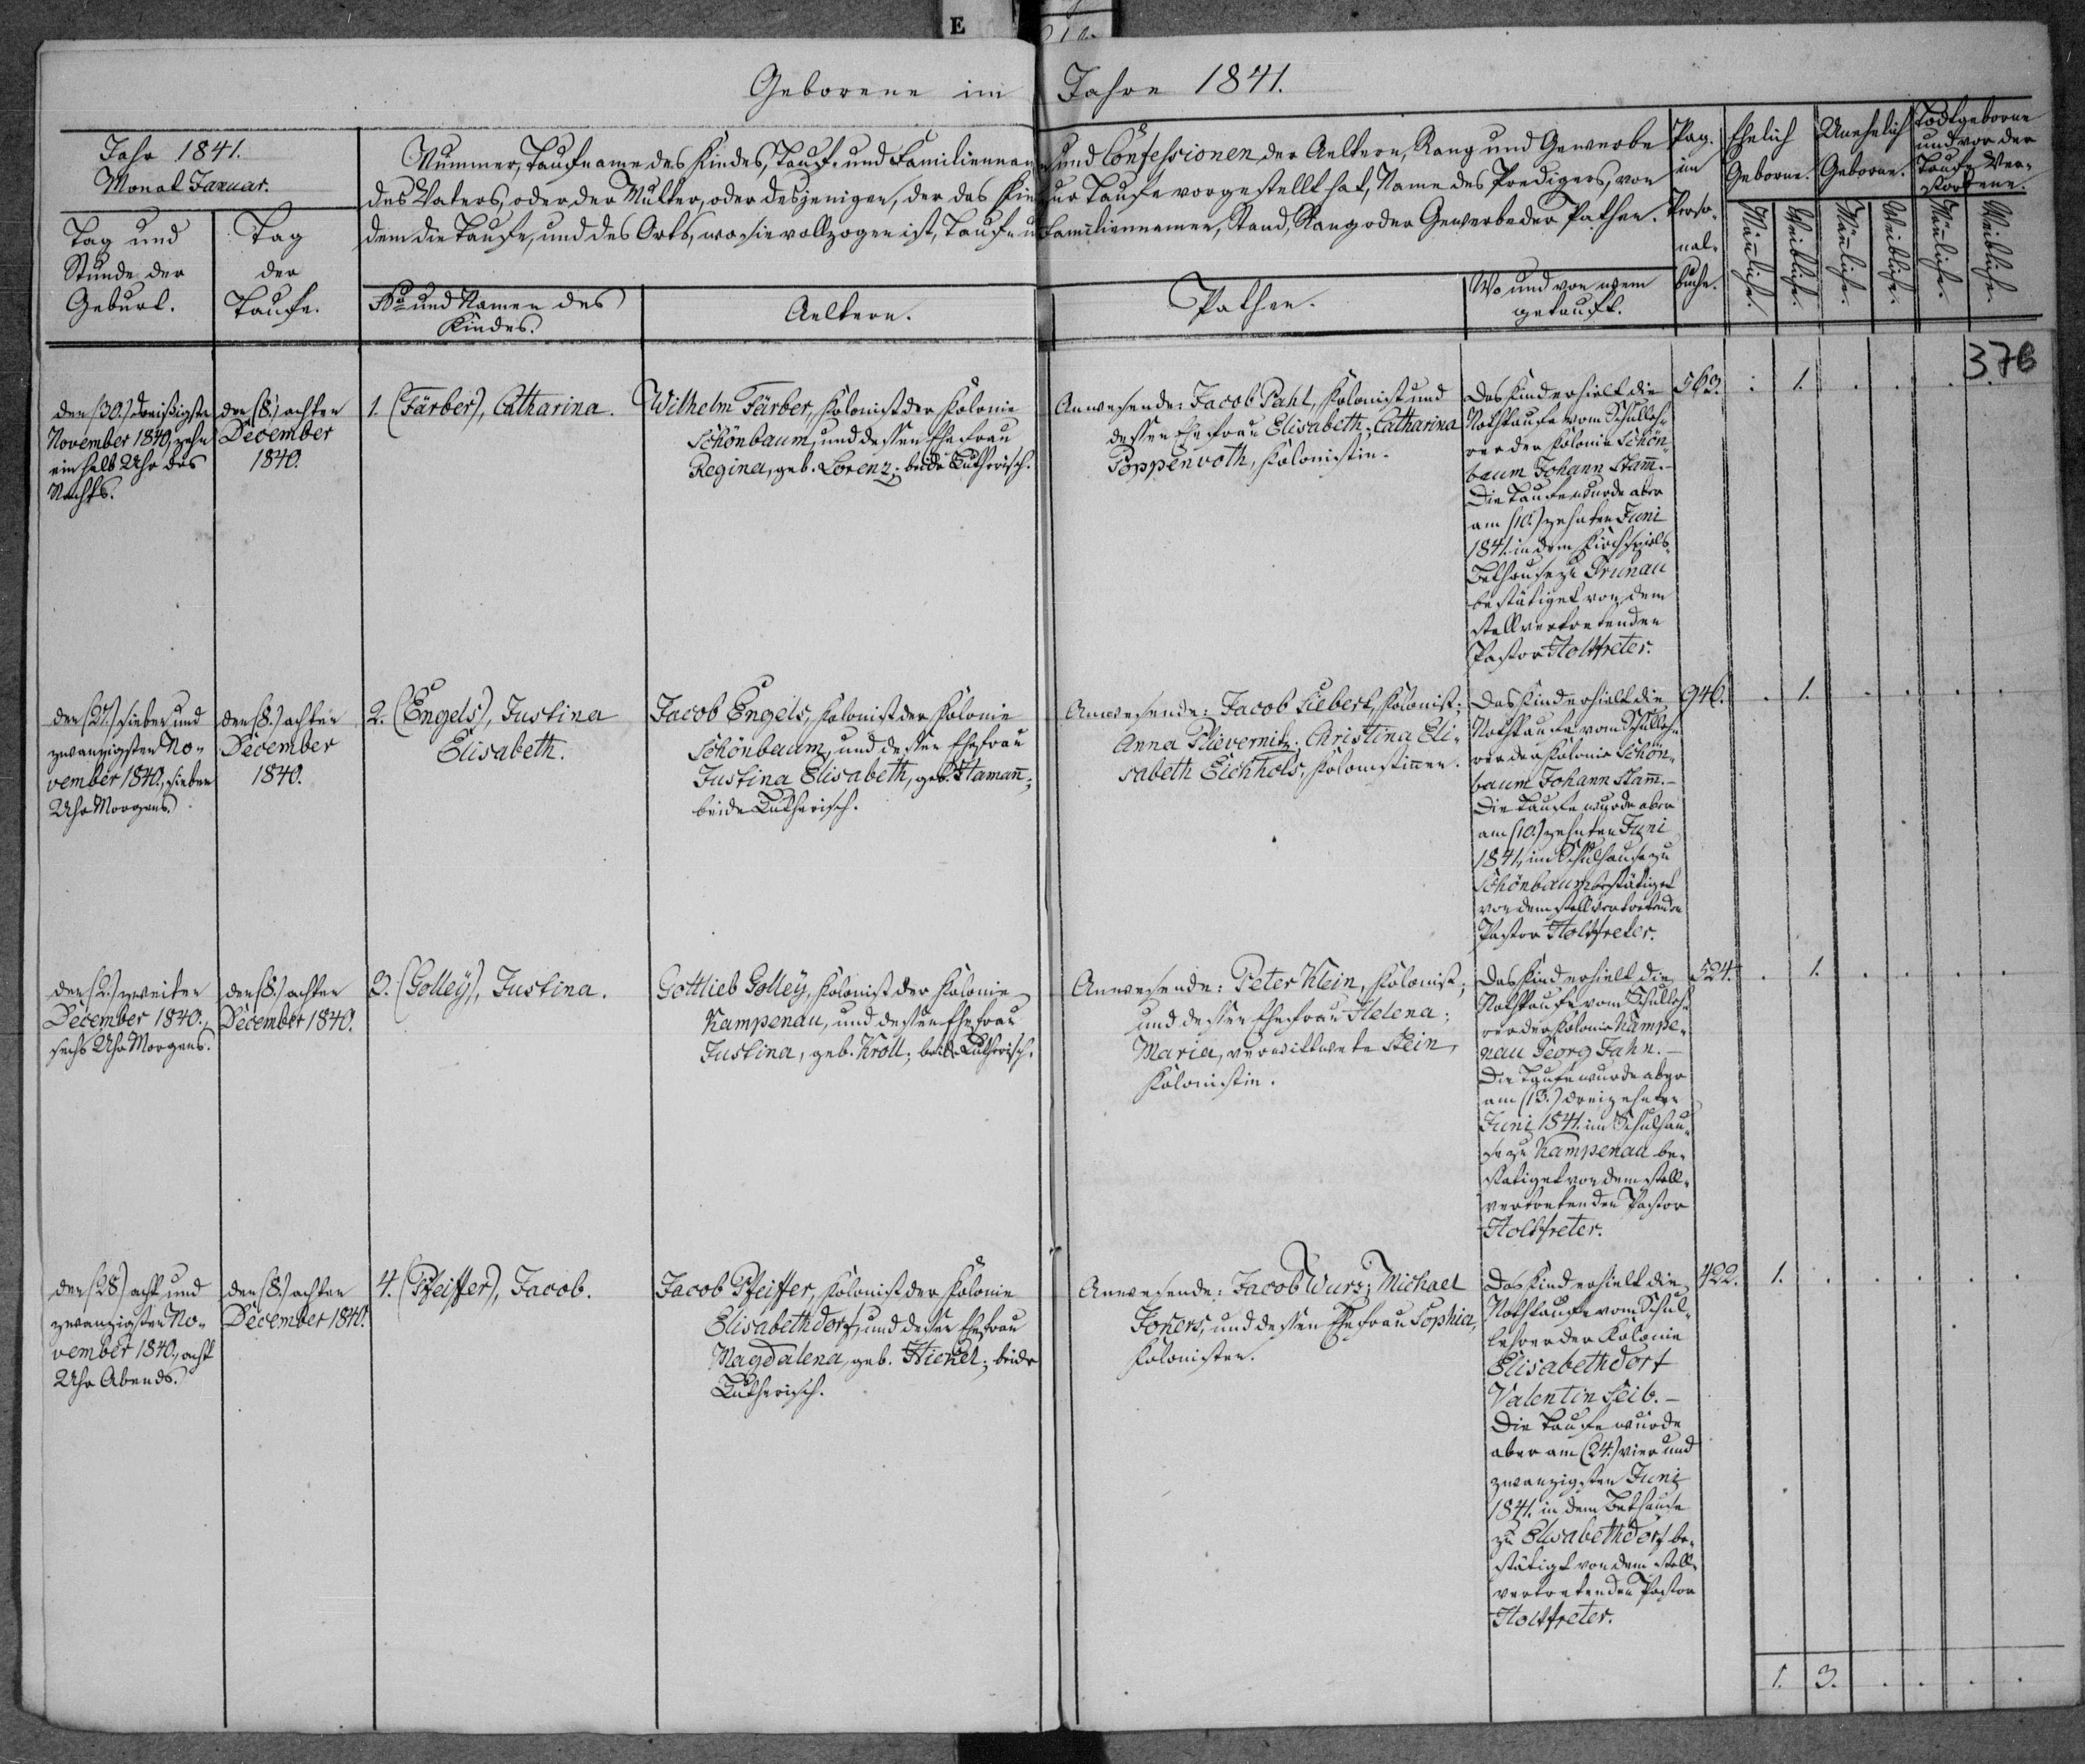 E
Geborene im Jahre 1841.
Jahr 1841.
Monat Januar.
Tag und
Stunde der
Geburt.
Tag
der
Taufe.
Nummer, Taufname des Kindes, Tauf- und Familiennamen und Confessionen der Aeltern, Rang und Gewerbe
des Vaters, oder der Mutter, oder desjenigen, der das Kind zur Taufe vorgestellt hat, Name des Predigers, von
dem die Taufe, und des Orts, wo sie vollzogen ist, Tauf- u Familiennamen, Stand, Rang oder Gewerbe der Pathen.
No und Namen des
Kindes.
Aeltern.
Pathen.
Wo und von wem
getauft.
Pag.
im
Perso-
nal-
buche.
Ehelich
Geborne.
Unehelich
Geborne.
Todtgeborne
und vor der
Taufe Ver-
storbene.
Männliche.
Weibliche.
Männliche.
Weibliche.
Männliche.
Weibliche.
376
den (30.) dreißigsten
November 1840, zehn
ein halb Uhr des
Nachts.
den (8.) achten
December
1840.
1. (Färber), Catharina.
Wilhelm Färber, Kolonist der Kolonie
Schönbaum, und dessen Ehefrau
Regina, geb. Lorenz; beide Lutherisch.
Anwesende: Jacob Pahl, Kolonist und
dessen Ehefrau Elisabeth; Catharina
Poppenroth, Kolonistin.
Das Kind erhielt die
Nothtaufe vom Schulleh-
rer der Kolonie Schön-
baum Johann Stam̄.-
Die Taufe wurde aber
am (10.) zehnten Juni
1841. in dem Kirchspiels-
Bethause zu Grunau
bestätiget von dem
stellvertretenden
Pastor Holtfreter.
563.
.
1.
.
.
.
.
den (27.) sieben und
zwanzigsten No-
vember 1840., sieben
Uhr Morgens.
den (8.) achten
December
1840.
2. (Engels), Justina
Elisabeth.
Jacob Engels, Kolonist der Kolonie
Schönbaum, und dessen Ehefrau
Justina Elisabeth, geb. Staman̄;
beide Lutherisch.
Anwesende: Jacob Siebert, Kolonist;
Anna Plievernitz; Christina Eli-
sabeth Eichhols, Kolonistin̄en.
Das Kind erhielt die
Nothtaufe vom Schulleh-
rer der Kolonie Schön-
baum Johann Stam̄.-
Die Taufe wurde aber
am (10.) zehnten Juni
1841, im Schulhause zu
Schönbaum bestätiget
von dem stellvertretenden
Pastor Holtfreter.
946.
.
1.
.
.
.
.
den (2.) zweiten
December 1840.,
sechs Uhr Morgens.
den (8.) achten
December 1840.
3. (Golleÿ), Justina.
Gottlieb Golleÿ, Kolonist der Kolonie
Kampenau, und dessen Ehefrau
Justina, geb. Kroll; beide Lutherisch.
Anwesende: Peter Klein, Kolonist,
und dessen Ehefrau Helena;
Maria, verwittwete Stein,
Kolonistin.
Das Kind erhielt die
Nothtaufe vom Schulleh-
rer der Kolonie Kampe-
nau Georg Jahn.-
Die Taufe wurde aber
am (13.) dreizehnten
Juni 1841. im Schulhau-
se zu Kampenau be-
stätiget von dem stell-
vertretenden Pastor
Holtfreter.
524.
.
1.
.
.
.
.
den (28) acht und
zwanzigsten No-
vember 1840., acht
Uhr Abends.
den (8.) achten
December 1840.
4. (Pfeiffer), Jacob.
Jacob Pfeiffer, Kolonist der Kolonie
Elisabethdorf, und dessen Ehefrau
Magdalena, geb. Hickel; beide
Lutherisch.
Anwesende: Jacob Wurz; Michael
Joners, und dessen Ehefrau Sophia,
Kolonisten.
Das Kind erhielt die
Nothtaufe vom Schul-
lehrer der Kolonie
Elisabethdorf
Valentin Seib.-
Die Taufe wurde
aber am (24.) vier und
zwanzigsten Juni
1841. in dem Bethause
zu Elisabethdorf be-
stätigt von dem stell-
vertretenden Pastor
Holtfreter.
422.
1.
.
.
.
.
.
1.
3.
.
.
.
.